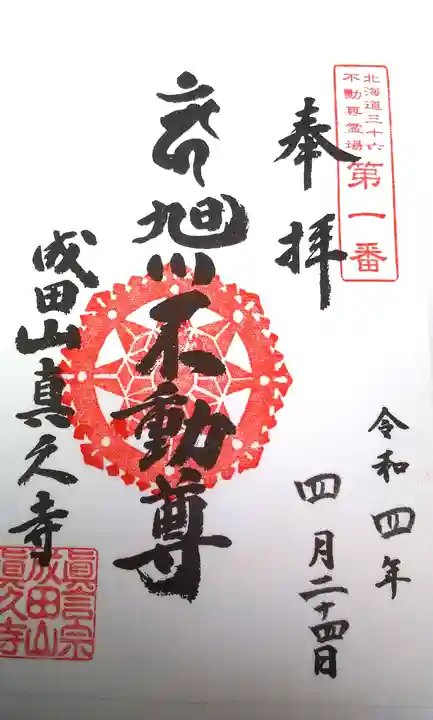 北海道三十六
不動尊霊場
第一番
奉拝
令和四年
四月二十四日
旭川不動尊
成田山真久寺
眞言宗
成田山
眞久寺